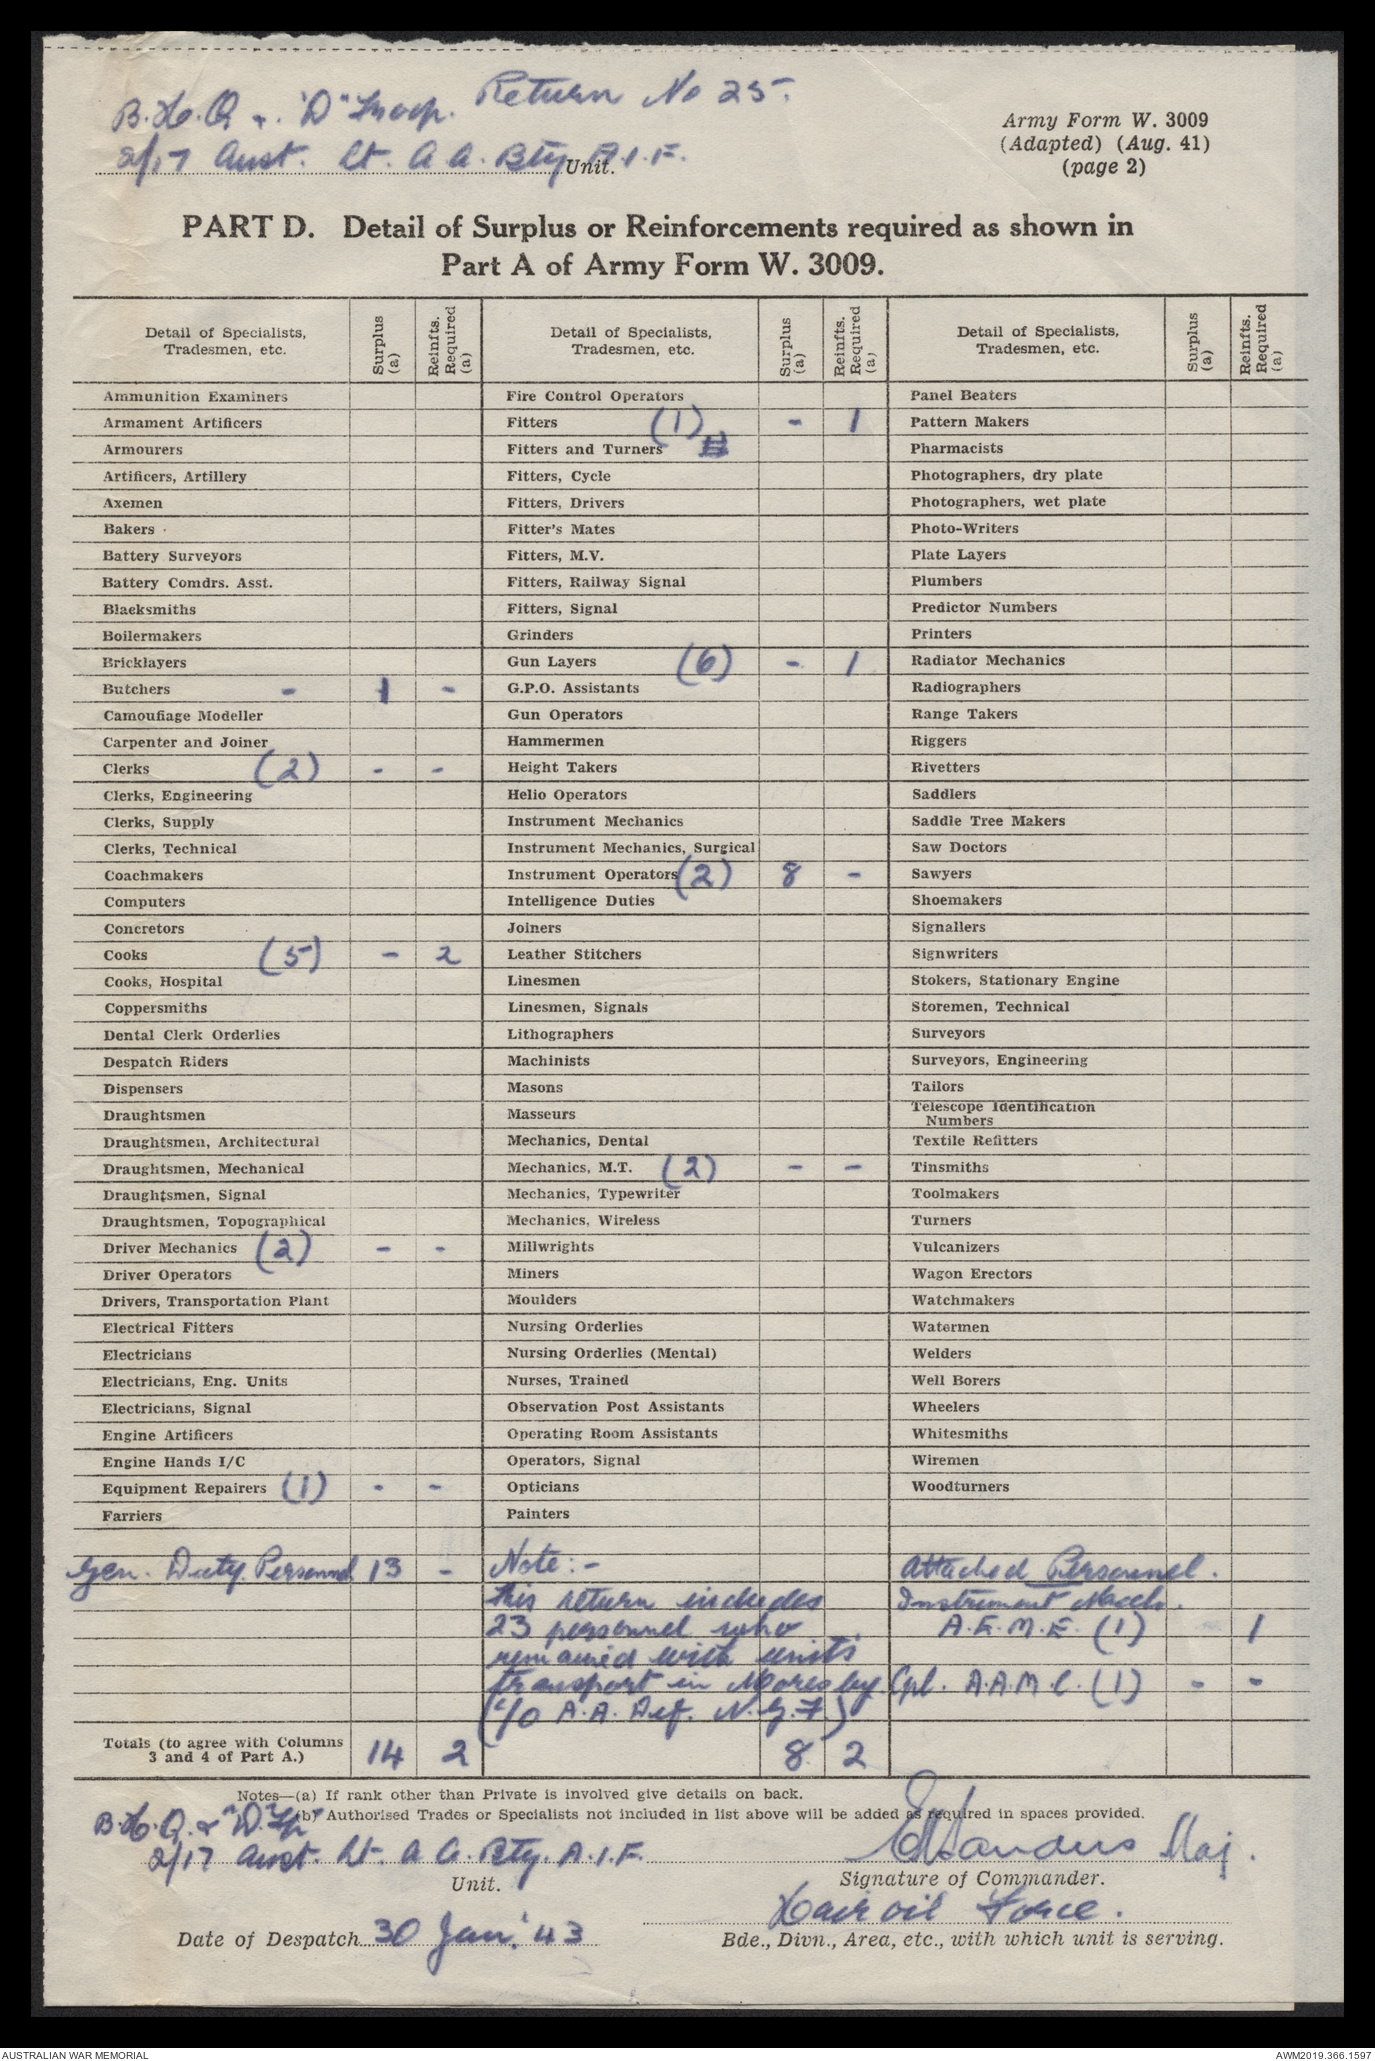 Return No 25.
B.H.Q. & "D" Troop.
2/17 Aust. Lt. A.A. Bty A.I.F. Unit.
Army Form W. 3009
(Adapted) (Aug. 41)
(page 2)
PART D. Detail of Surplus or Reinforcements required as shown in
Part A of Army Form W. 3009.
Detail of Specialists, Tradesmen, etc. Surplus (a) Reinfts. Required (a) Detail of Specialists, Tradesmen, etc. Surplus (a) Reinfts. Required (a) Detail of Specialists, Tradesmen, etc. Surplus (a) Reinfts. Required (a)
Ammunition Examiners Fire Control Operators Panel Beaters
Armament Artificers Fitters (1) - 1 Pattern Makers
Armourers Fitters and Turners Pharmacists
Artificers, Artillery Fitters, Cycle Photographers, dry plate
Axemen Fitters, Drivers Photographers, wet plate
Bakers Fitter's Mates Photo-Writers
Battery Surveyors Fitters, M.V. Plate Layers
Battery Comdrs. Asst. Fitters, Railway Signal Plumbers
Blacksmiths Fitters, Signal Predictor Numbers
Boilermakers Grinders Printers
Bricklayers Gun Layers (6) - 1 Radiator Mechanics
Butchers - 1 - G.P.O. Assistants Radiographers
Camouflage Modeller Gun Operators Range Takers
Carpenter and Joiner Hammermen Riggers
Clerks (2) - - Height Takers Rivetters
Clerks, Engineering Helio Operators Saddlers
Clerks, Supply Instrument Mechanics Saddle Tree Makers
Clerks, Technical Instrument Mechanics, Surgical Saw Doctors
Coachmakers Instrument Operators (2) 8 - Sawyers
Computers Intelligence Duties Shoemakers
Concretors Joiners Signallers
Cooks (5) - 2 Leather Stitchers Signwriters
Cooks, Hospital Linesmen Stokers, Stationary Engine
Coppersmiths Linesmen, Signals Storemen, Technical
Dental Clerk Orderlies Lithographers Surveyors
Despatch Riders Machinists Surveyors, Engineering
Dispensers Masons Tailors
Draughtsmen Masseurs Telescope Identification Numbers
Draughtsmen, Architectural Mechanics, Dental Textile Refitters
Draughtsmen, Mechanical Mechanics, M.T. (2) - - Tinsmiths
Draughtsmen, Signal Mechanics, Typewriter Toolmakers
Draughtsmen, Topographical Mechanics, Wireless Turners
Driver Mechanics (2) - - Millwrights Vulcanizers
Driver Operators Miners Wagon Erectors
Drivers, Transportation Plant Moulders Watchmakers
Electrical Fitters Nursing Orderlies Watermen
Electricians Nursing Orderlies (Mental) Welders
Electricians, Eng. Units Nurses, Trained Well Borers
Electricians, Signal Observation Post Assistants Wheelers
Engine Artificers Operating Room Assistants Whitesmiths
Engine Hands I/C Operators, Signal Wiremen
Equipment Repairers (1) - - Opticians Woodturners
Farriers Painters
Gen. Duty Personnel 13 - Note:- Attached Personnel.
this return includes Instrument Mech.
23 personnel who A.E.M.E. (1) - 1
remained with units
transport in Moresby. Cpl. A.A.M.C. (1) - -
(C/O A.A. Def. N.G.F.)
Totals (to agree with Columns 3 and 4 of Part A.) 14 2 8 2
Notes—(a) If rank other than Private is involved give details on back.
(b) Authorised Trades or Specialists not included in list above will be added as required in spaces provided.
B.H.Q. & "D" Tp
2/17 Aust. Lt. A A. Bty. A.I.F.
Unit.
Maj.
Signature of Commander.
Date of Despatch 30 Jan. '43
Force.
Bde., Divn., Area, etc., with which unit is serving.
AUSTRALIAN WAR MEMORIAL
AWM2019.366.1597